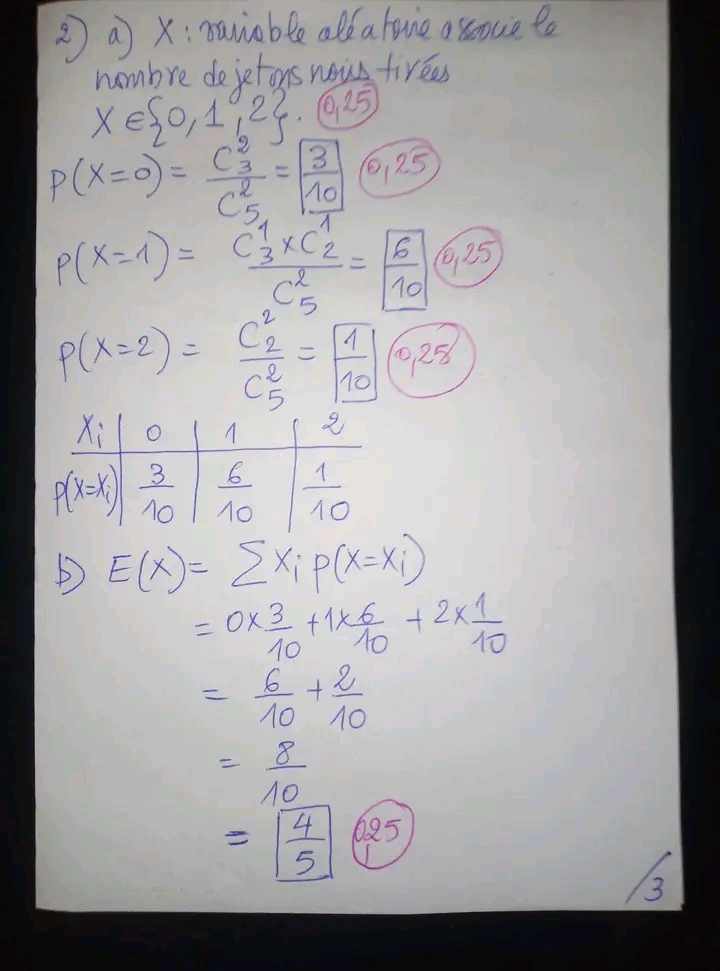 2) a) X : variable aléatoire associe le
nombre de jetons noirs tirées
X ∈ {0, 1, 2}. 0,25
p(X=0) = C₃²/C₅² = 3/10 0,25
p(X=1) = C₃¹ × C₂¹/C₅² = 6/10 0,25
p(X=2) = C₂²/C₅² = 1/10 0,25
Xi | 0 | 1 | 2
p(X=Xi) | 3/10 | 6/10 | 1/10
b) E(X) = ∑ Xi p(X=Xi)
= 0 × 3/10 + 1 × 6/10 + 2 × 1/10
= 6/10 + 2/10
= 8/10
= 4/5 0,25
/3